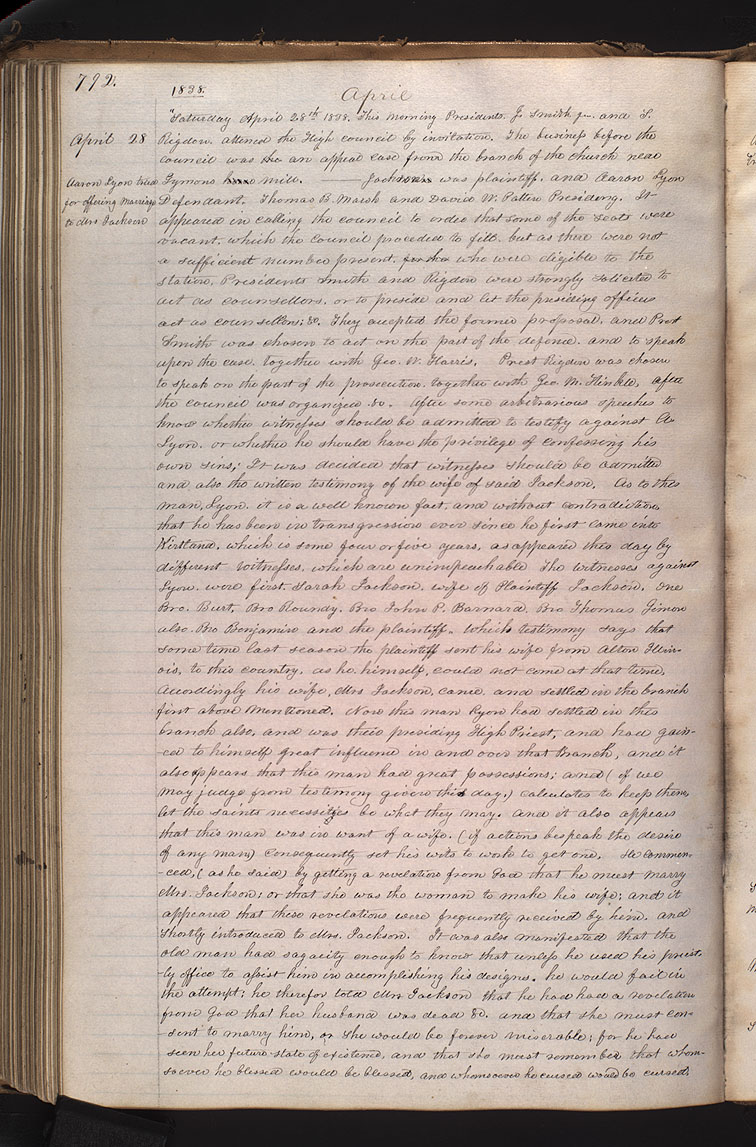 792.
1838.
April
"Saturday April 28th 1838. This morning Presidents J. Smith jr. and S.
April 28
Rigdon, attened the High council by invitation. The business before the
council was the an appeal case from the branch of the church near
Aaron Lyon tried
for offering Marriage
to Mrs Jackson
Gymons mill. — Jackson was plaintiff, and Aaron Lyon
Defendant. Thomas B. Marsh and David W. Patten Presiding. It
appeared in calling the council to order that some of the seats were
vacant, which the council proceded to fill. but as there were not
a sufficient number present, who were eligible to the
station, Presidents Smith and Rigdon were strongly solicited to
act as counsellors, or to preside and let the presiding officers
act as counsellors; &c. They accepted the former proposal, and Prest
Smith was chosen to act on the part of the defence, and to speak
upon the case, together with Geo. W. Harris. Prest Rigdon was chosen
to speak on the part of the prosecution, together with Geo. M. Hinkle, after
the council was organized &c. After some arbitrarious speeches to
know whether witnesses should be admitted to testify against A.
Lyon, or whether he should have the privilege of confessing his
own sins; It was decided that witnesses should be admitted
and also the written testimony of the wife of said Jackson. As to this
man, Lyon, it is a well known fact, and without contradiction,
that he has been in transgression ever since he first came into
Kirtland, which is some four or five years, as appeared this day by
different witnesses, which are unimpeachable. The witnesses against
Lyon were first, Sarah Jackson, wife of Plaintiff Jackson. One
Bro. Burt, Bro Roundy. Bro John P. Barnard. Bro Thomas Gimon
also Bro Benjamin and the plaintiff. Which testimony says that
some time last season the plaintiff sent his wife from Alton Illin-
ois, to this country, as he himself, could not come at that time.
Accordingly his wife, Mrs Jackson, came and settled in the branch
first above mentioned. Now this man Lyon had settled in this
branch also, and was their presiding High Priest, and had gain-
-ed to himself great influence in and over that Branch, and it
also appears that this man had great possessions; and (if we
may judge from testimony given this day,) calculates to keep them
let the saints necessities be what they may. and it also appears
that this man was in want of a wife. (if actions bespeak the desire
of any man) Consequently set his wits to work to get one. He commen-
-ced, (as he said) by getting a revelation from God that he must marry
Mrs. Jackson; or that she was the woman to make his wife; and it
appeared that these revelations were frequently received by him, and
shortly introduced to Mrs. Jackson. It was also manifested that the
old man had sagacity enough to know that unless he used his priest-
-ly office to assist him in accomplishing his designs, he would fail in
the attempt; he therefor told Mrs Jackson that he had had a revelation
from God that her husband was dead &c. and that she must con-
-sent to marry him, or she would be forever miserable; for he had
seen her future state of existence, and that she must remember that whom-
soever he blessed would be blessed, and whomsoever he cursed would be cursed,